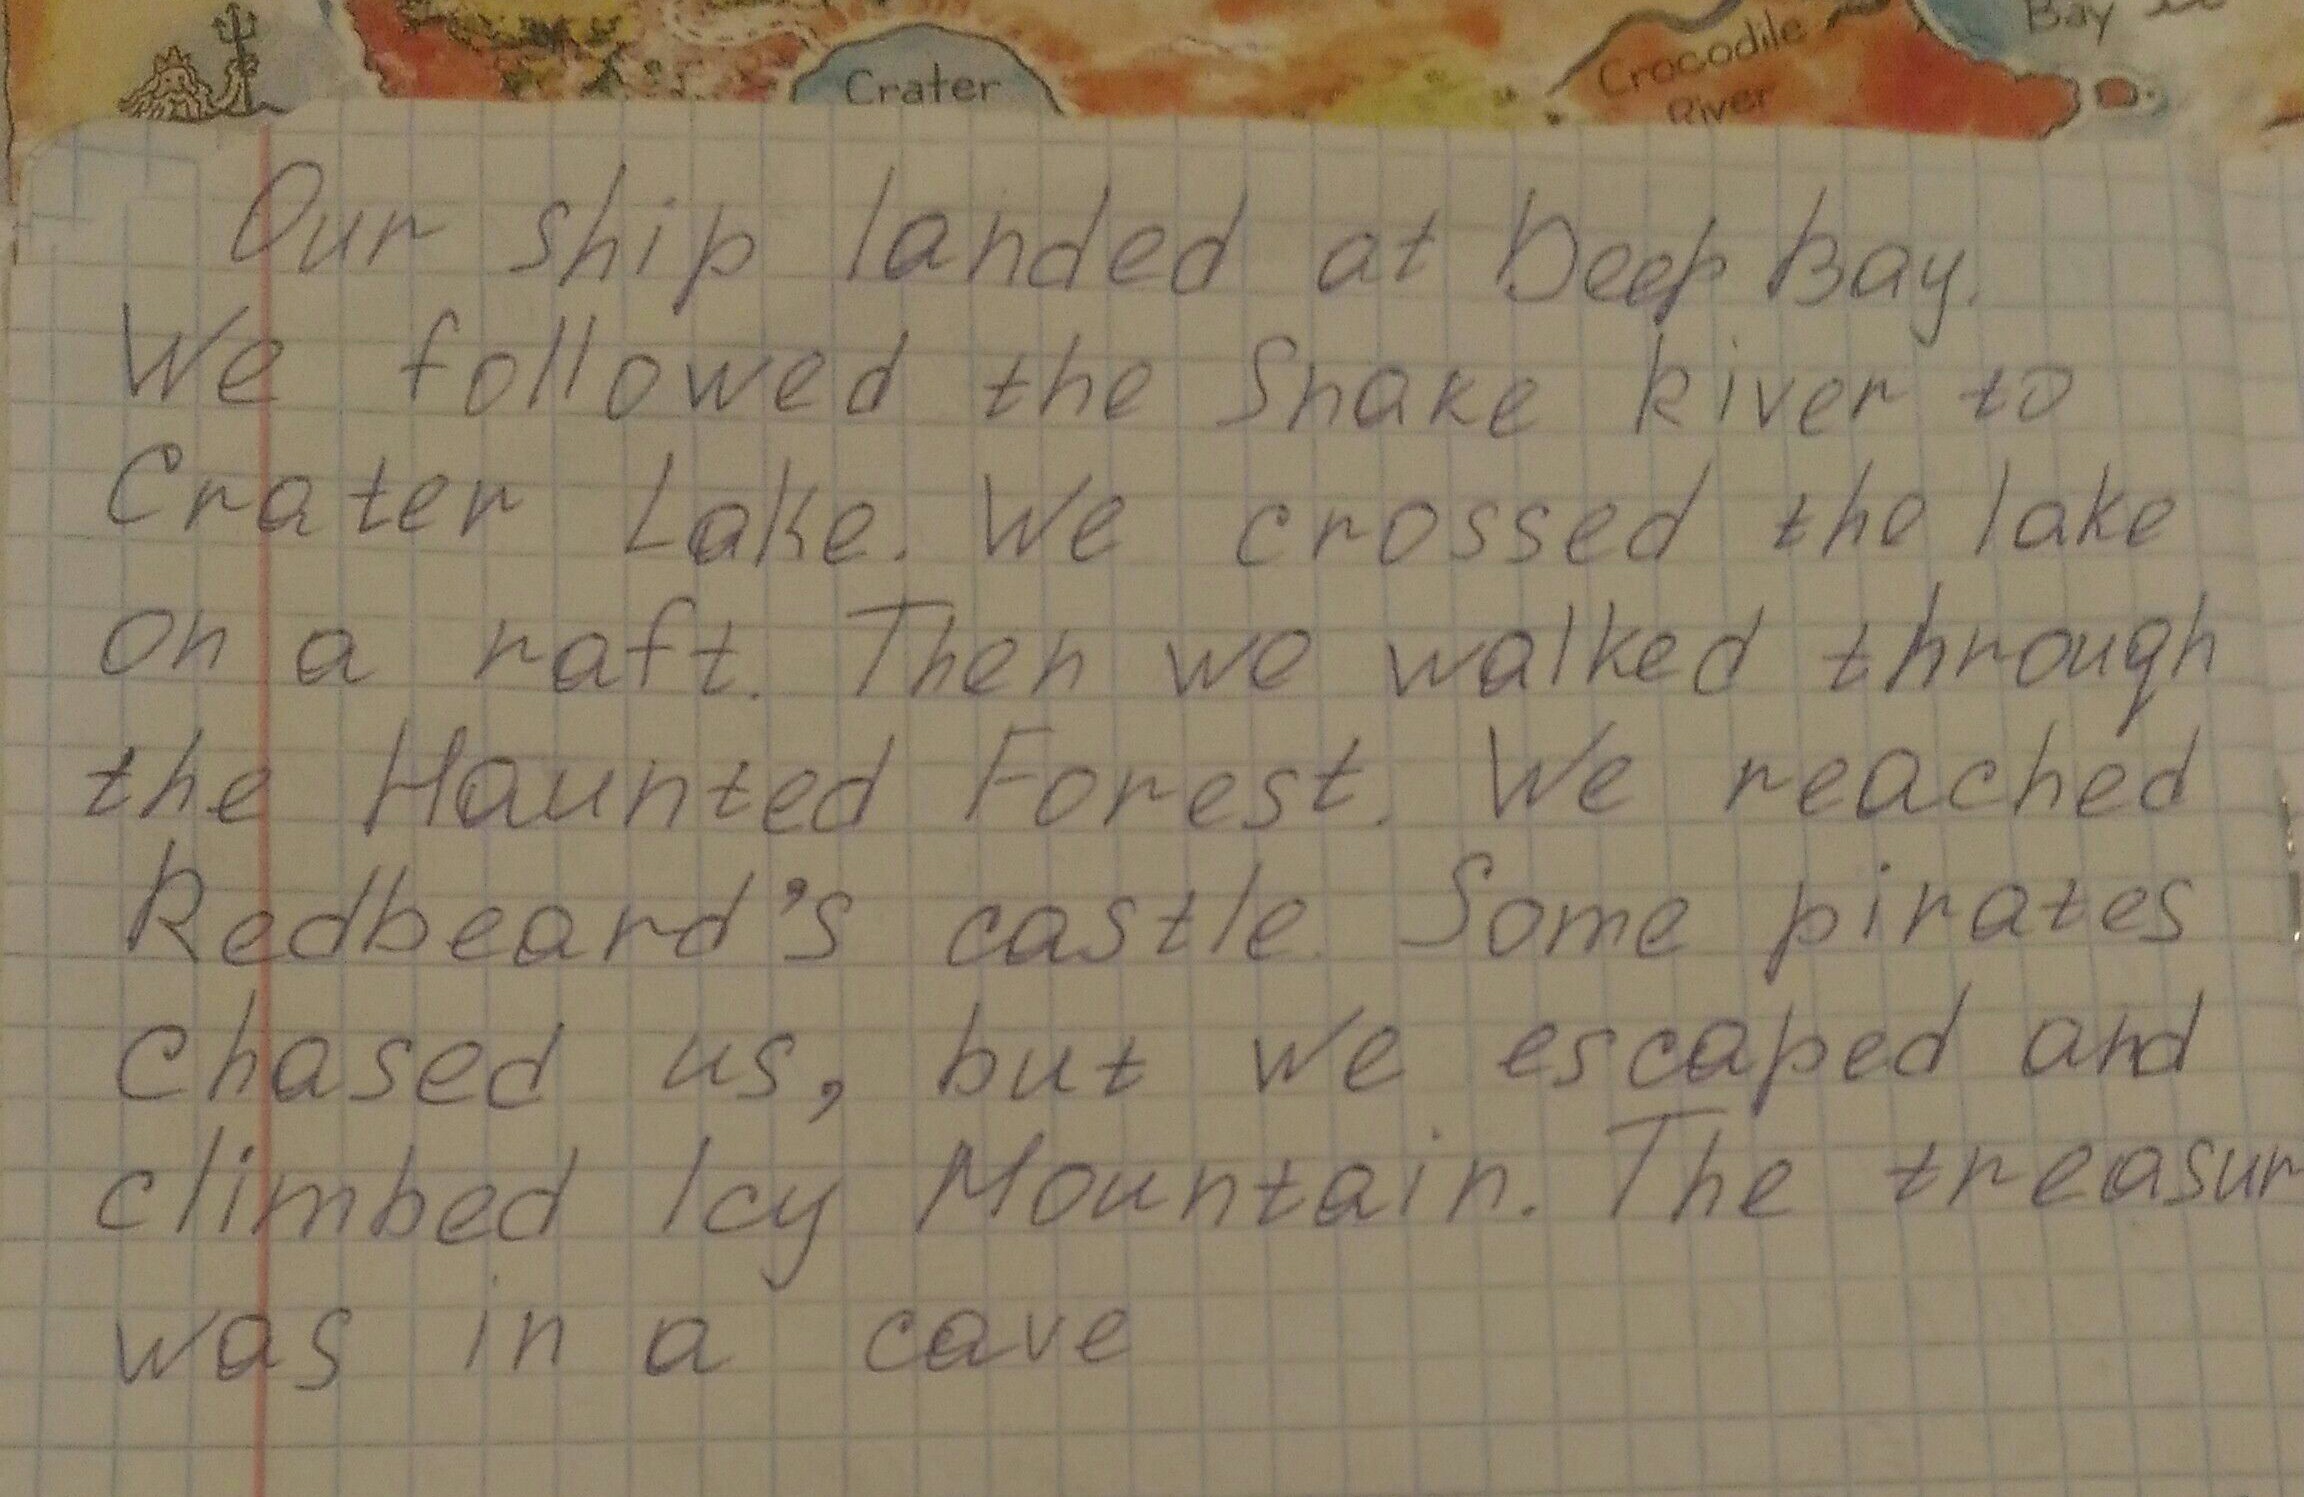 Crater
Crocodile
River
Bay
Our ship landed at Deep Bay.
We followed the Snake River to
Crater Lake. We crossed the lake
on a raft. Then we walked through
the Haunted Forest. We reached
Redbeard's castle. Some pirates
chased us, but we escaped and
climbed Icy Mountain. The treasur
was in a cave